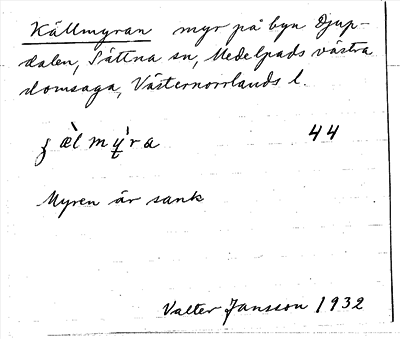 Källmyran myr på byn Djup-
dalen, Sättna sn, Medelpads västra
domsaga, Västernorrlands l.
44
Myren är sank
Valter Jansson 1932